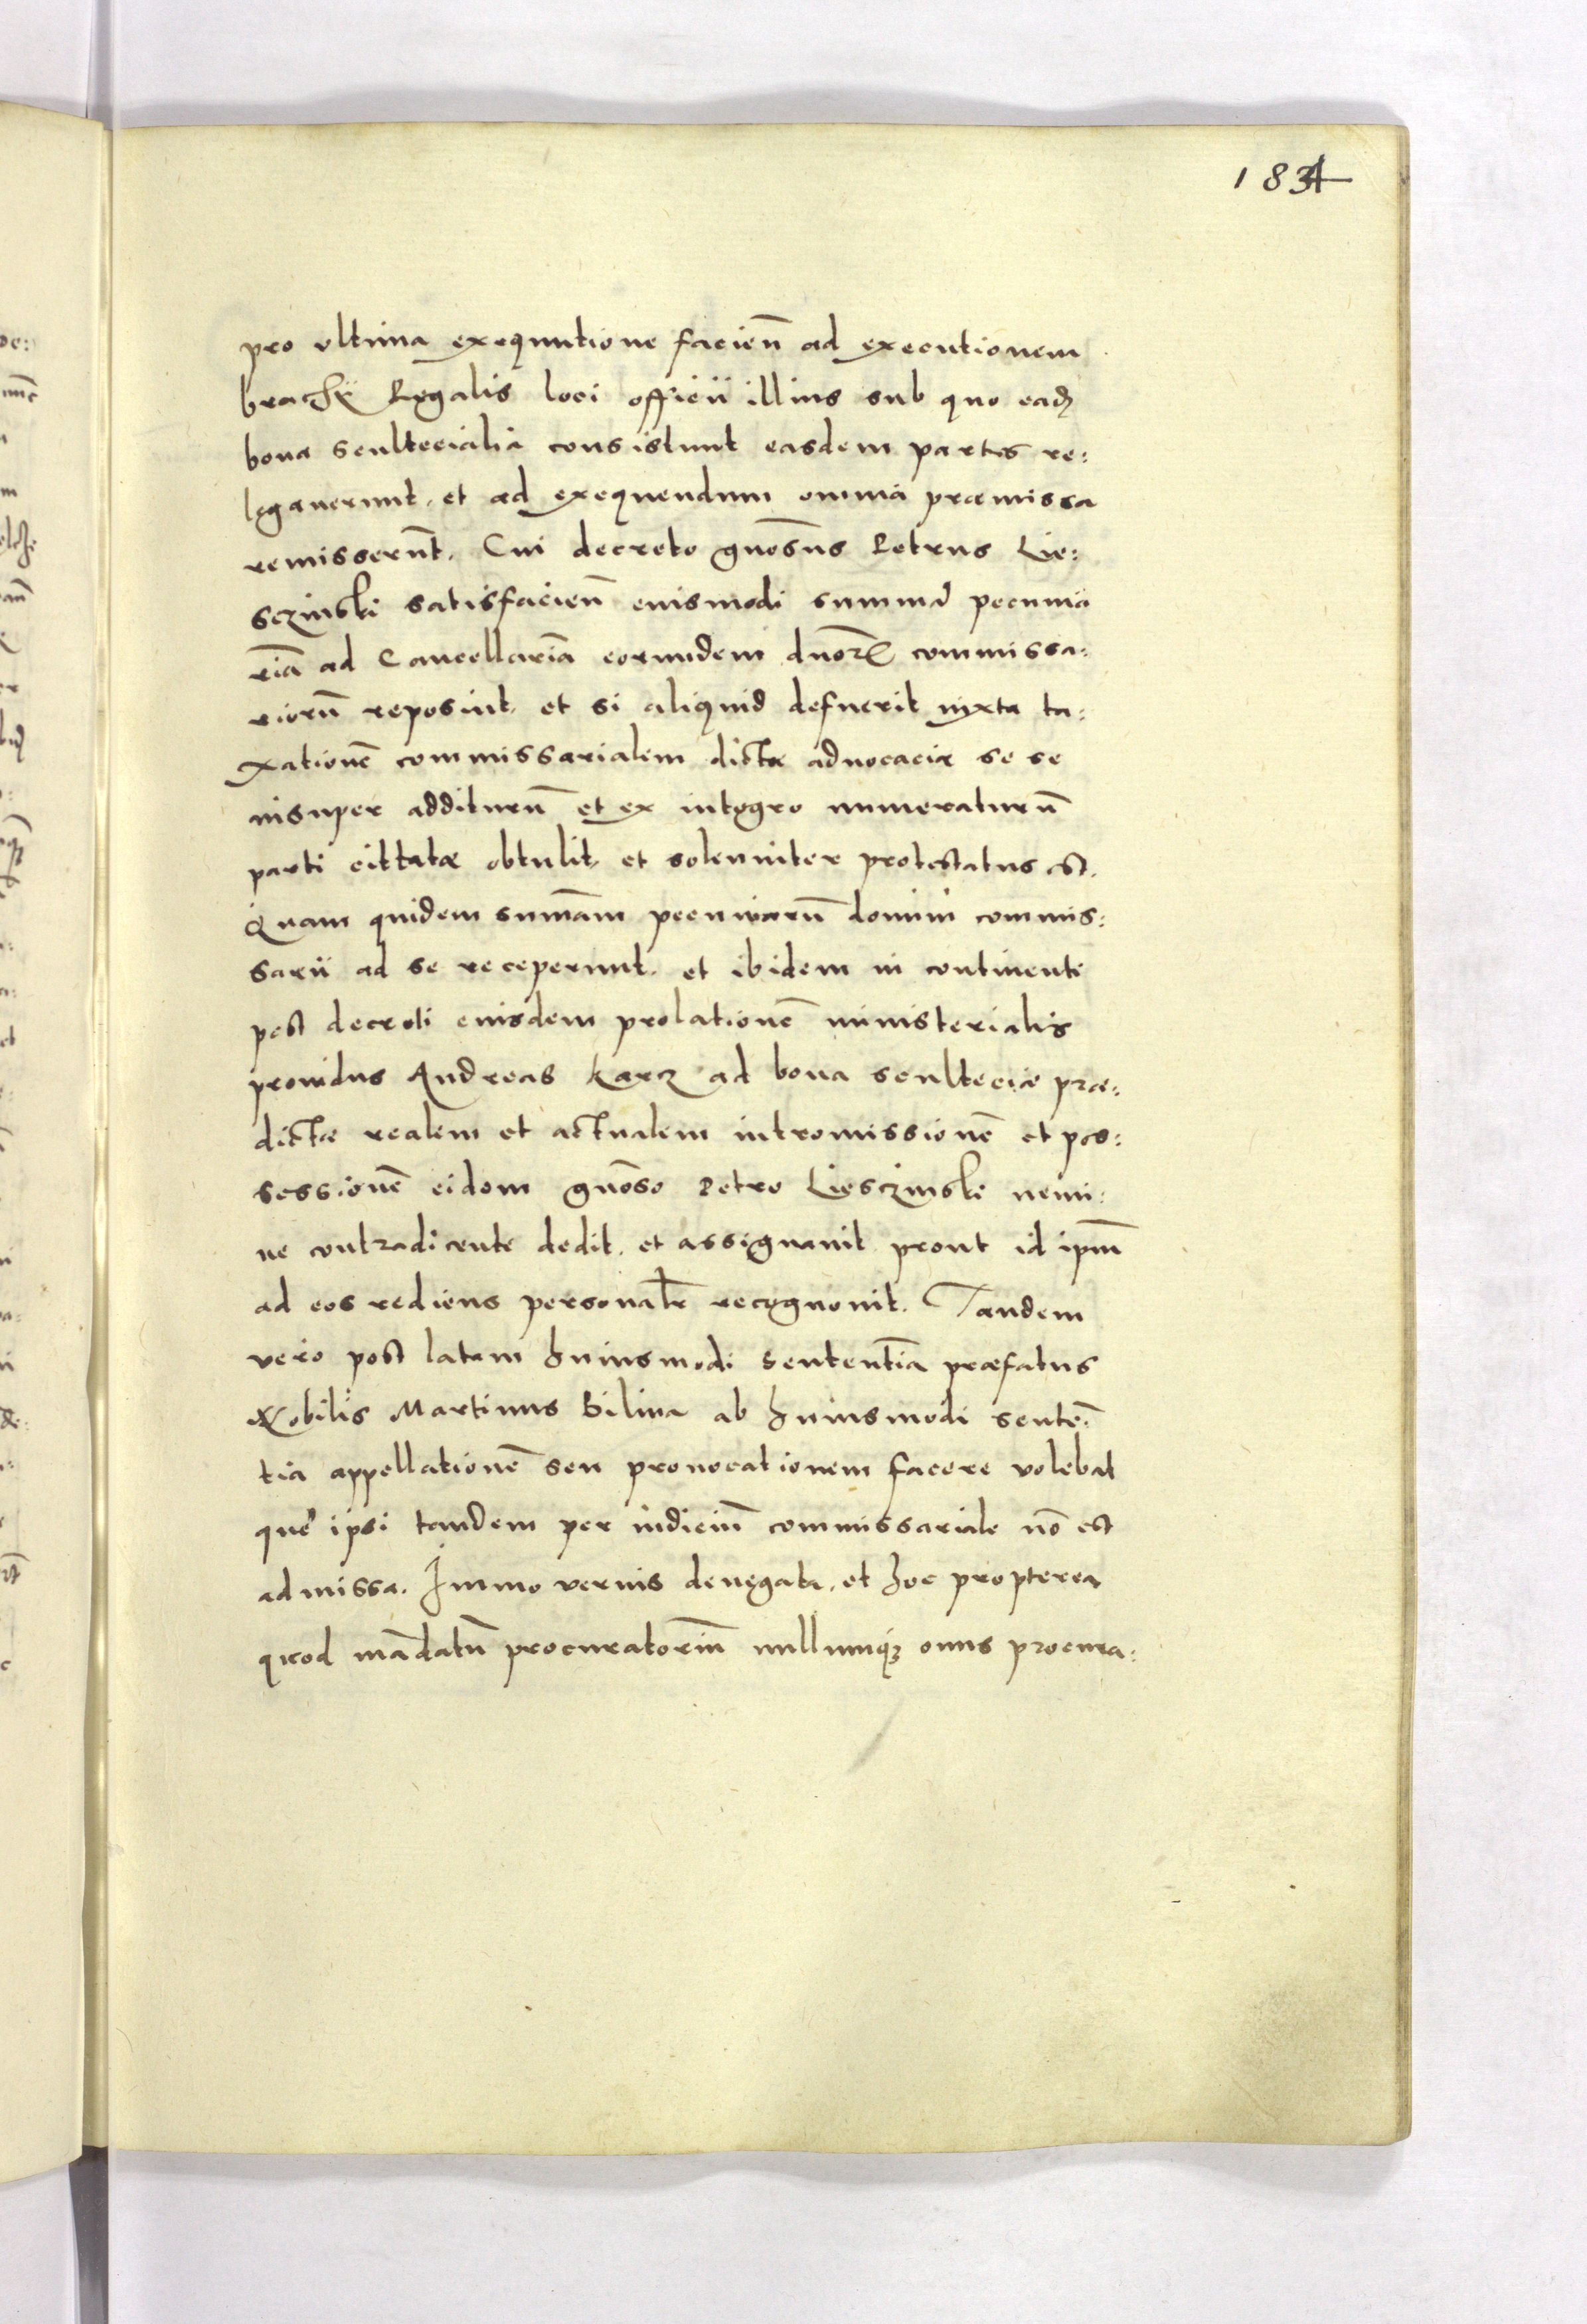 184
pro vltima exequutione facień ad executionem
brachÿ Regalis loci officii illius sub quo eadꝫ
bona scultecialia consistunt easdem partes re:
legauerunt. et ad exequendum omnia præmissa
remisserūnt. Cui decreto gn̄osus Petrus Lie:
sczinski satisfacień euismodi summā pecunia
riā ad Cancellariā eorundem dn̄orꝝ commissa:
riorū reposuit, et si aliquid defuerit iuxta ta:
xationē commissarialem dictæ aduocaciæ se se
insuper additurū et ex integro numeraturū
parti cittatæ obtulit, et solenniter protestatus est.
Quam quidem sum̄am pecuniarū domini commis:
sarii ad se receperunt. et ibidem in continenti
post decreti eiusdem prolationē ministerialis
prouidus Andreas Karcz ad bona sculteciæ præ:
dictæ realem et actualem intromissionē et pos:
sessionē eidem gn̄oso Petro Liesczinski nemi:
ne contradicente dedit. et assignauit prout id ipm̄
ad eos rediens personalr̄ recognouit. Tandem
vero post latam huiusmodi sententiā præfatus
Nobilis Martinus Bilina ab huiusmodi sentē:
tia appellationē seu prouocationem facere volebat
quę ipsi tandem per iudiciū commissariale nō est
admissa. Immo verius denegata. et hoc propterea
quod mādatū procuratoriū nullumqꝫ onus procura: